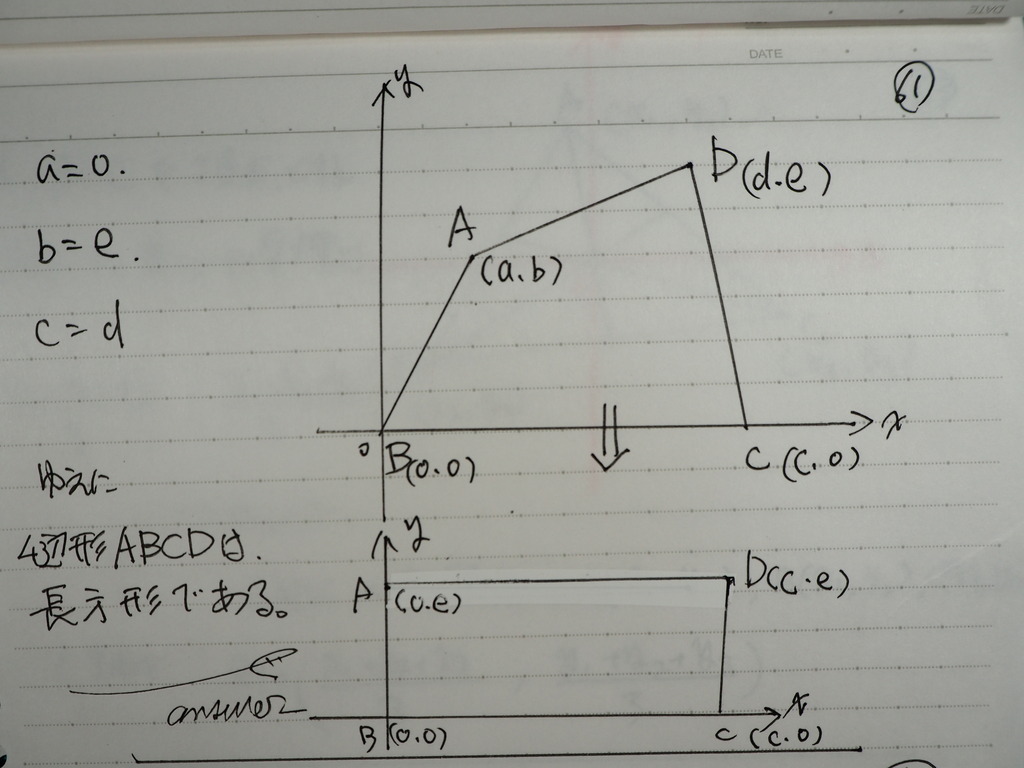 DATE
61
a=0.
b=e.
c=d
ゆえに
4辺形ABCDは.
長方形である。
answer
y
D(d.e)
A
(a.b)
x
0
B(0.0)
C(C.0)
y
A
(0.e)
D(C.e)
x
B(0.0)
C(C.0)